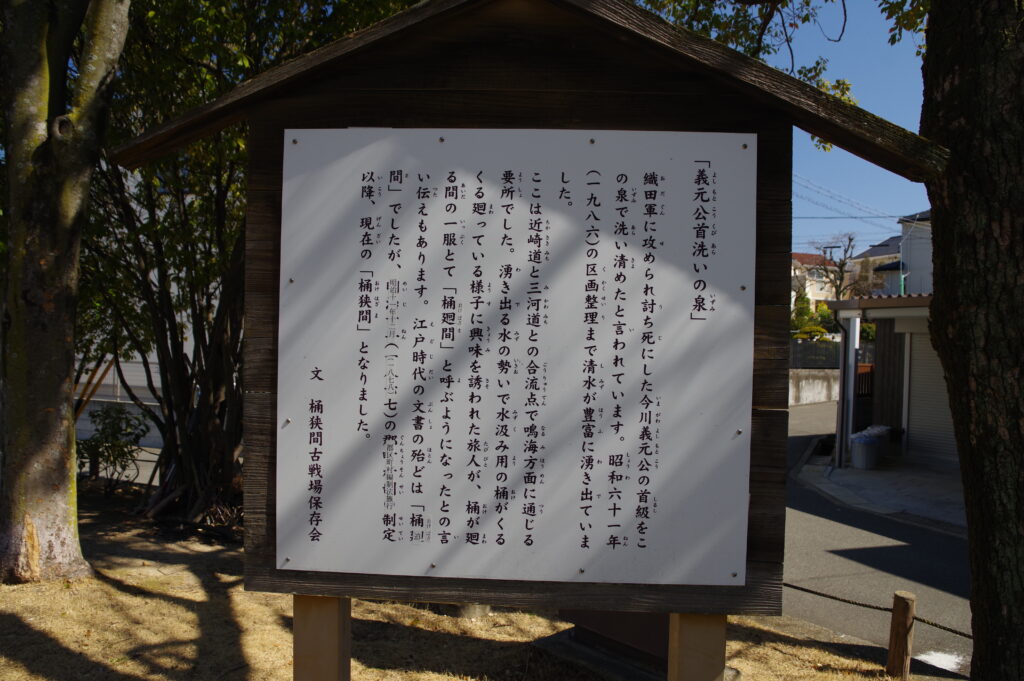 「義元公首洗いの泉」
織田軍に攻められ討ち死にした今川義元公の首級をこ
の泉で洗い清めたと言われています。昭和六十一年
（一九八六）の区画整理まで清水が豊富に湧き出ていま
した。
ここは近崎道と三河道との合流点で鳴海方面に通じる
要所でした。湧き出る水の勢いで水汲み用の桶がくる
くる廻っている様子に興味を誘われた旅人が、桶が廻
る間の一服とて「桶廻間」と呼ぶようになったとの言
い伝えもあります。江戸時代の文書の殆どは「桶
間」でしたが、制定
以降、現在の「桶狭間」となりました。
文 桶狭間古戦場保存会